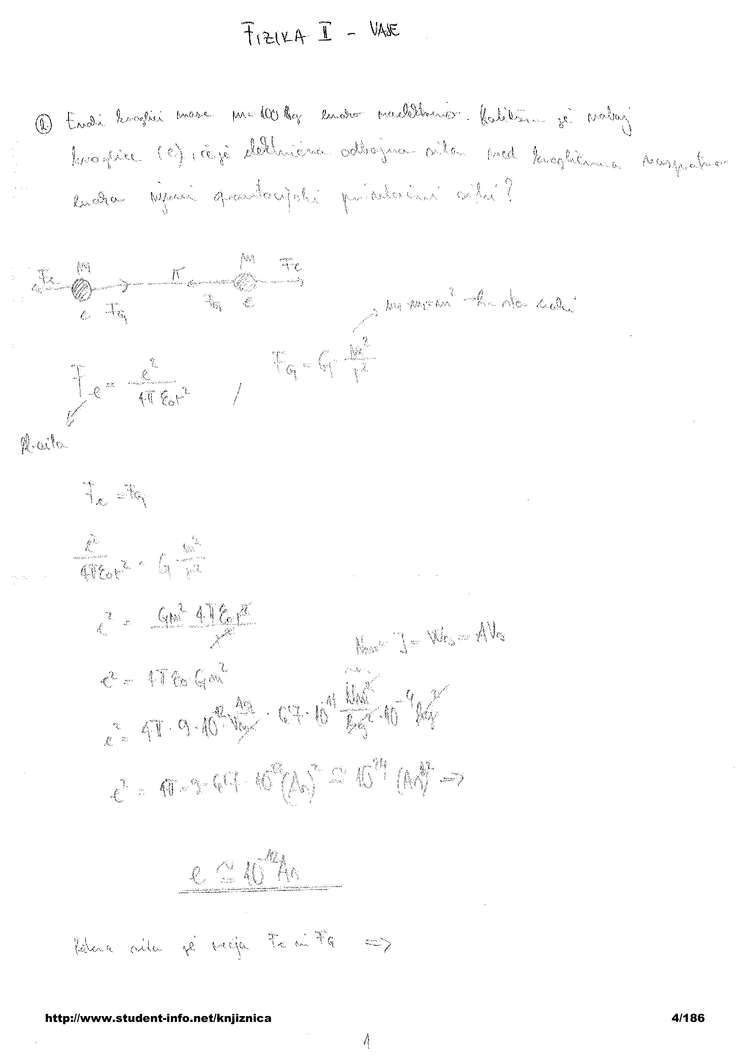 FIZIKA II - VAJE
② Enaki kroglici mase m= 100 kg enako naelektrimo. Kolikšen je naboj
kroglice (e), če je električna odbojna sila med kroglicama nasprotno
enaka njuni gravitacijski privlačni sili?
Fe M r M Fe
e FG FG e
Fe = e² / 4πε₀r² , FG = G · m² / r² → m₁·m₂=m²
Fe = FG
e² / 4πε₀r² = G m² / r²
e² = Gm² 4πε₀r² / r²
e² = 4πε₀ Gm²
Nm = J = Ws = AVs
e² = 4π · 9 · 10⁻¹² As/Vm · 6,7 · 10⁻¹¹ Nm²/kg² · 10⁻⁴ kg²
e² = 4π · 9 · 6,7 · 10⁻²⁷ (As)² ≅ 10⁻²⁴ (As)² ⇒
e ≅ 10⁻¹² As
Katera sila je večja Fe in FG ⇒
http://www.student-info.net/knjiznica 4/186
1